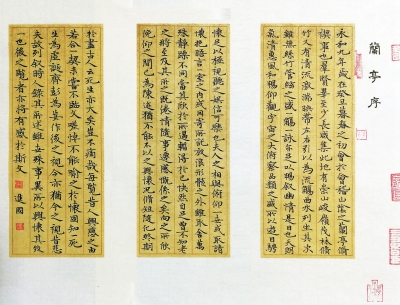 蘭亭序
永和九年歲在癸丑暮春之初會於會稽山陰之蘭亭脩
禊事也羣賢畢至少長咸集此地有崇山峻嶺茂林脩
竹又有清流激湍映帶左右引以為流觴曲水列坐其次
雖無絲竹管絃之盛一觴一詠亦足以暢敘幽情是日也天朗
氣清惠風和暢仰觀宇宙之大俯察品類之盛所以遊目騁
懷足以極視聽之娛信可樂也夫人之相與俯仰一世或取諸
懷抱晤言一室之內或因寄所託放浪形骸之外雖取舍萬
殊靜躁不同當其欣於所遇輒得於己快然自足曾不知老
之將至及其所之既惓情隨事遷感慨係之矣向之所欣
俛仰之間已為陳迹猶不能不以之興懷況脩短隨化終期
於盡古人云死生亦大矣豈不痛哉每覽昔人興感之由
若合一契未嘗不臨文嗟悼不能喻之於懷固知一死
生為虛誕齊彭殤為妄作後之視今亦猶今之視昔悲
夫故列敘時人錄其所述雖世殊事異所以興懷其致
一也後之覽者亦將有感於斯文 進國